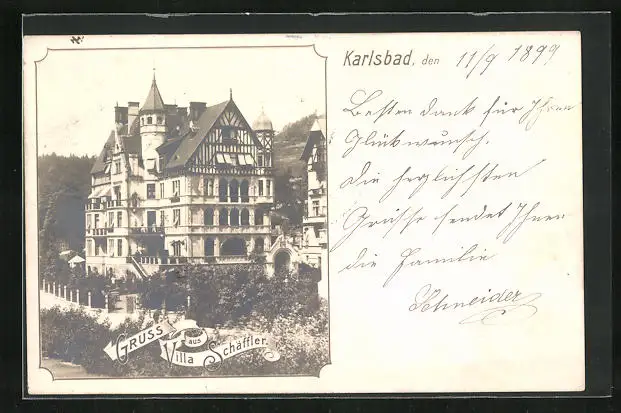 Karlsbad, den 11/9 1899
Besten Dank für Ihren
Glückwunsch.
Die herzlichsten
Grüsse sendet Ihnen
die Familie
Schneider
GRUSS
aus
Villa Schäffler.